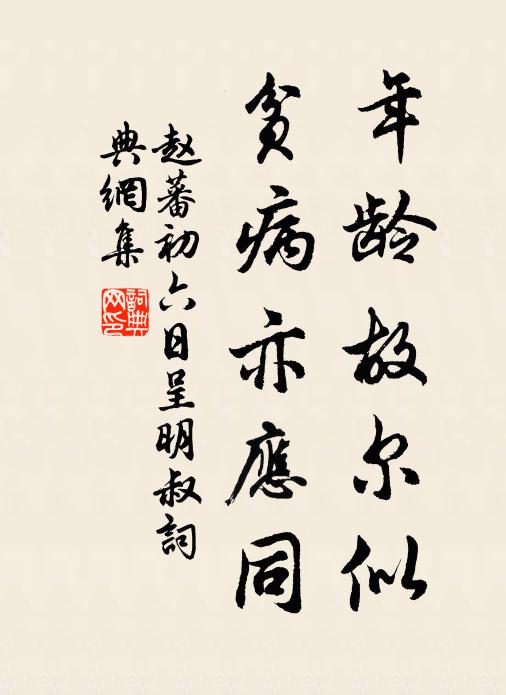 年龄故尔似
贫病亦應同
赵蕃初六日呈明叔詞
典網集
詞典
网印